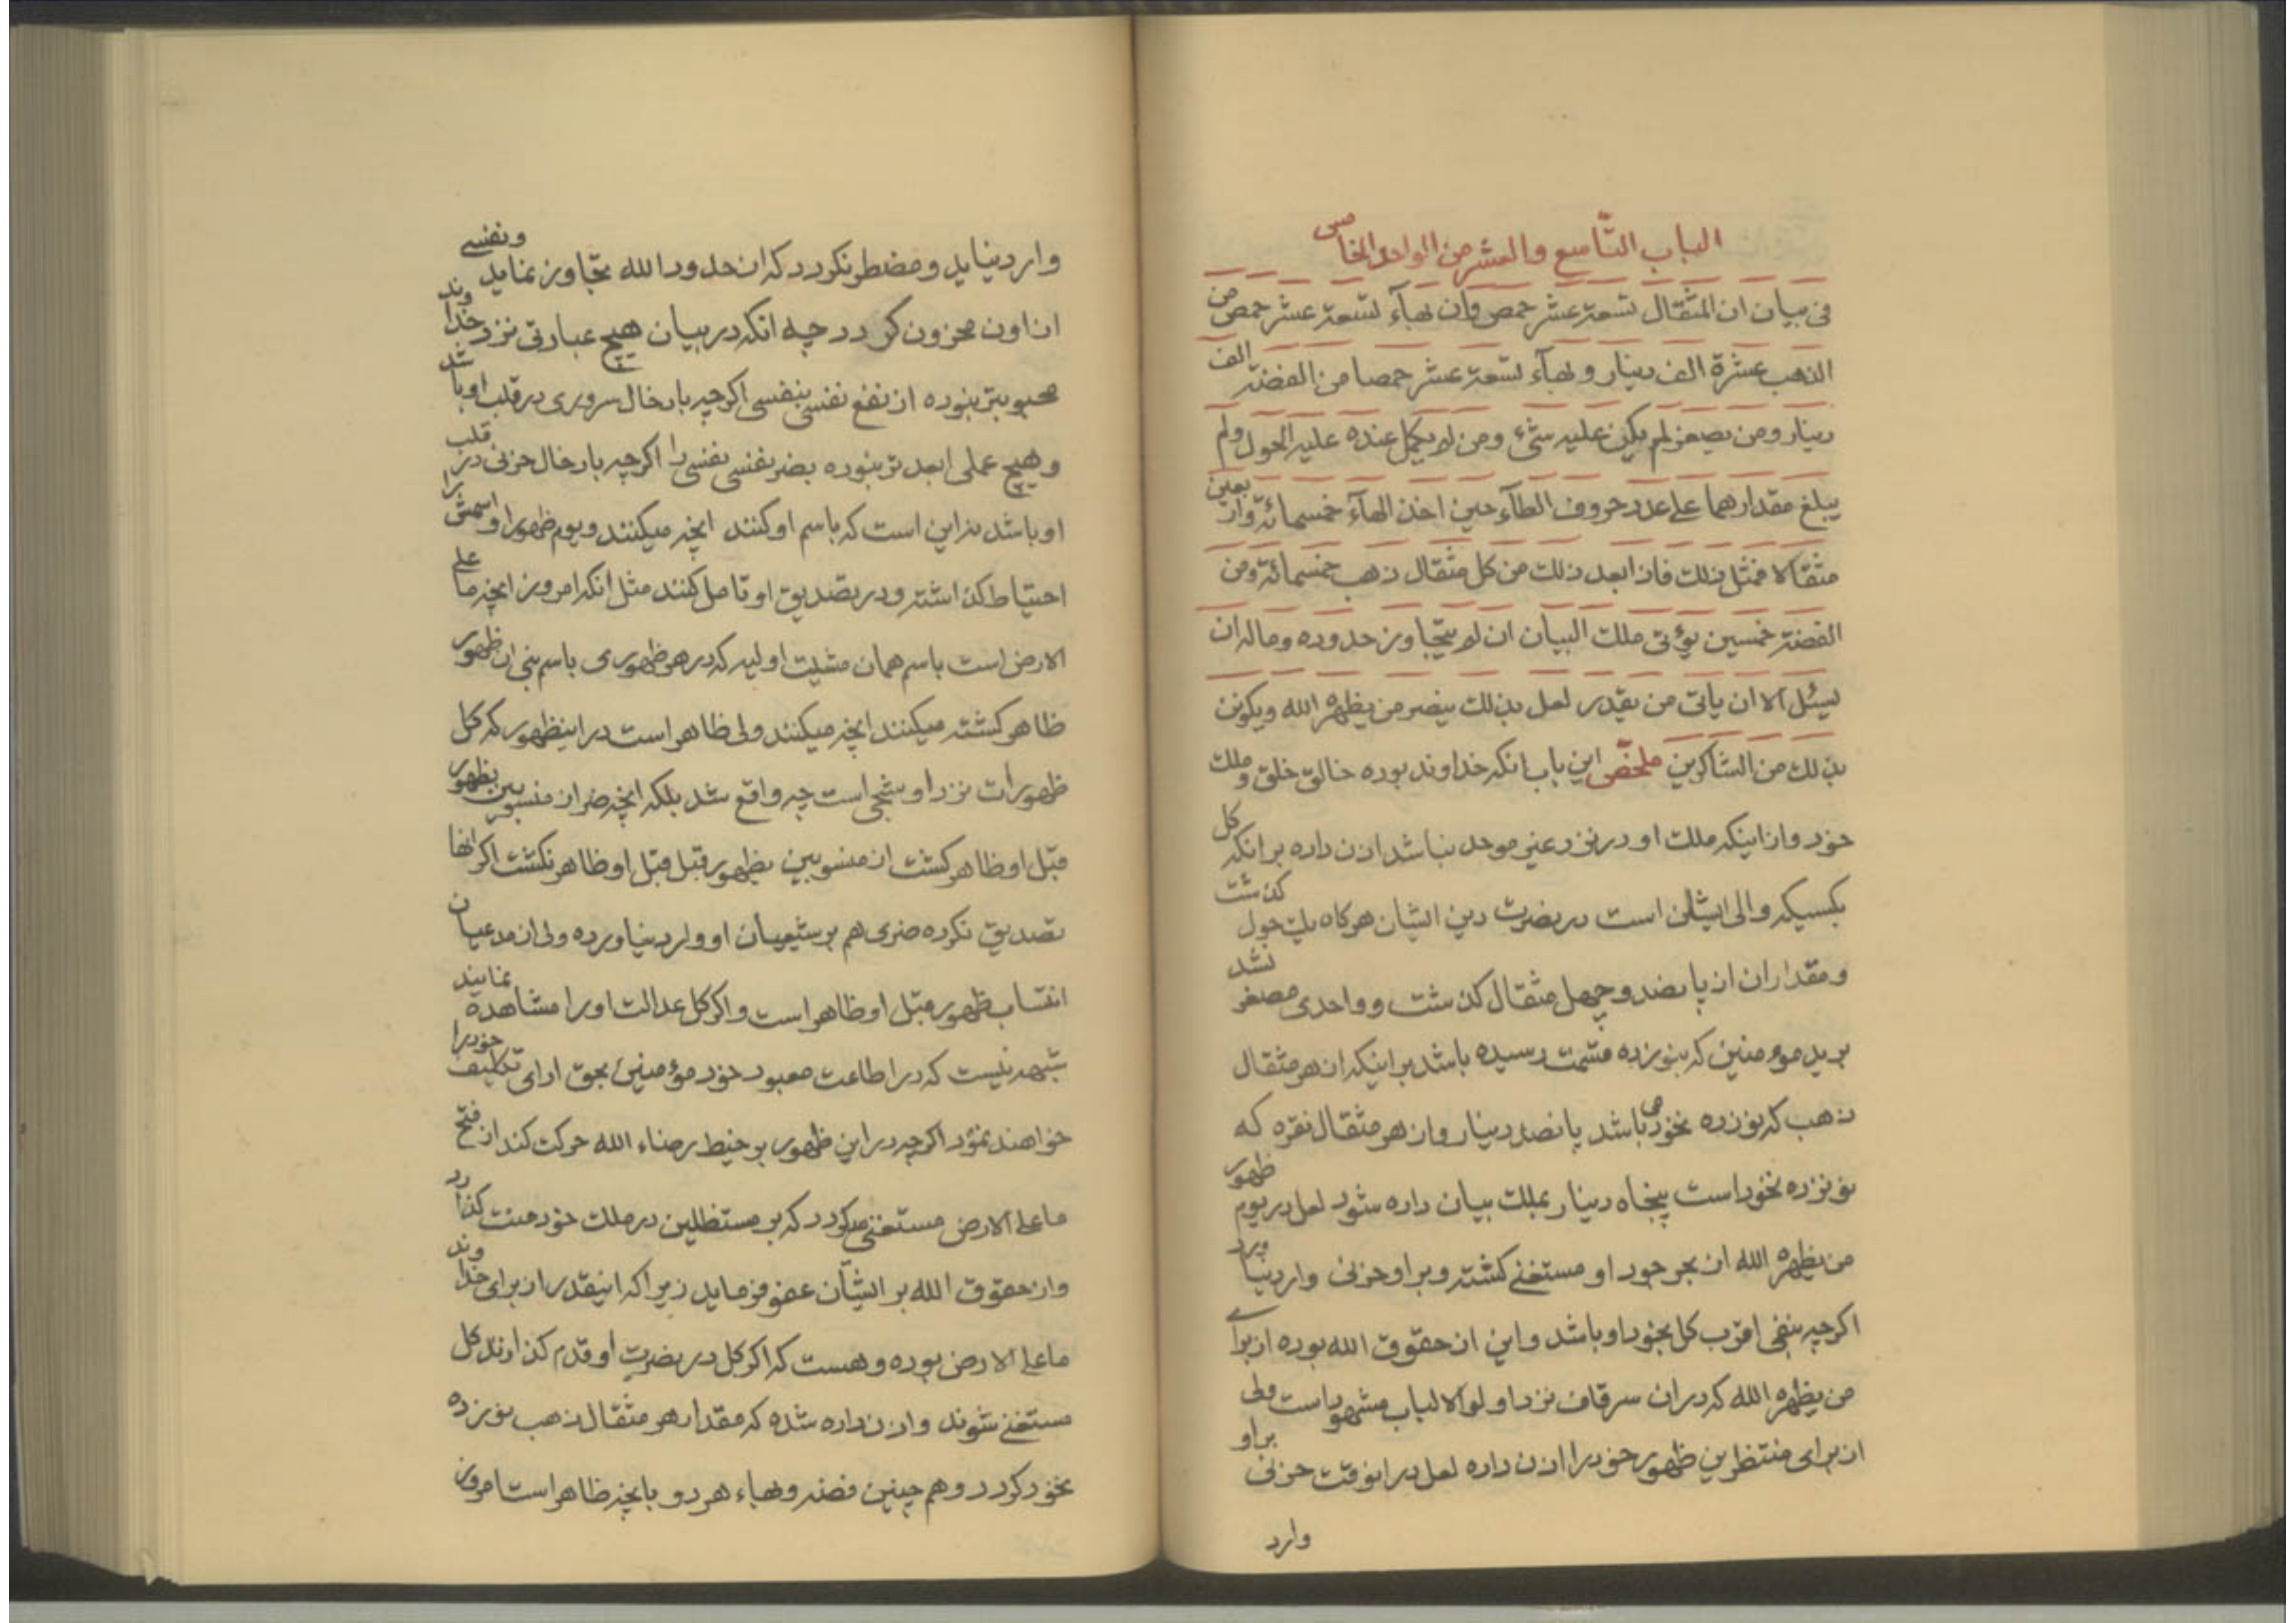 الباب التّاسع والعشر من الواحد الخامس
فی بیان ان المثقال تسعة عشر حمص وان بهآء تسعة عشر حمص من
الذهب عشرة الف دینار و بهآء تسعة عشر حمصا من الفضة الف
دینار ومن یصغر لم یکن علیه شیٔ ومن لم یکمل عنده علیه الحول ولم
یبلغ مقدارهما علی عدد حروف الطآء حین اخذ الهآء خمسمائة واربعین
مثقالا فمثل ذلك فاذا بعد ذلك من کل مثقال ذهب خمسمائة ومن
الفضة خمسین یؤتی ملك البیان ان لم یتجاوز حدوده وماله ان
یسئل الا ان یاتی من یقدر لعل بذلك ینصر من یظهره الله ویکونن
بذلك من الشاکرین ملخّص این باب انکه خداوند بوده خالق خلق وملك
خود وازاینکه ملك او در نزد غیر موحد نباشد اذن داده بر انکه کل
بکسیکه والی ایشان است در نصرت دین ایشان هرکاه یك حول کذشت
و مقداران از پانصد و چهل مثقال کذشت و واحدی مصغر نشد
برید مومنین که بنوزده قسمت رسیده باشد بر اینکه از هر مثقال
ذهب که نوزده نخود می باشد پانصد دینار واز هر مثقال نقره که
نوزده نخود است پنجاه دینار بملك بیان داده شود لعل در یوم ظهور
من یظهره الله از بحر جود او مستغنی کشته و بر او حزنی وارد نیاورد
اکرچه بنفی اقرب کل بخود او باشد واین از حقوق الله بوده از برای
من یظهره الله که دران سرقاف نزد اولوالالباب مشهود است ولی
از برای منتظرین ظهور خود را اذن داده لعل در انوقت حزنی بر او
وارد
وارد نیاید و مضطر نکردد که از حدود الله تجاوز نماید ونفسی
از اون محزون کردد چه انکه در بیان هیچ عبارتی نزد خداوند
محبوبتر نبوده از نفع نفسی بنفسی اکرچه بادخال سروری در قلب او باشد
وهیچ عملی ابعد تر نبوده بضر نفسی نفسی را اکرچه بادخال حزنی در قلب
او باشد نه این است که باسم او کنند انچه میکنند و یوم ظهور او اسمش را
احتیاط کذاشته و در تصدیق او تامل کنند مثل انکه امروز انچه ما علی
الارض است باسم همان مشیت اولیه که در هر ظهوری باسم نبی ان ظهور
ظاهر کشته میکنند انچه میکنند ولی ظاهر است در اینظهور که کل
ظهورات نزد او شبحی است چه واقع شد بلکه انچه ضر از منسوبین بظهور
قبل او ظاهر کشت از منسوبین بظهور قبل قبل او ظاهر نکشت اکر انها
تصدیق نکرده ضری هم بر شیعیان او وارد نیاورده ولی از مدعیان
انتساب ظهور قبل او ظاهر است واکر کل عدالت او را مشاهده نمایند
شبهه نیست که در اطاعت معبود خود مؤمنین بحق ادای تکلیف خود را
خواهند نمود اکرچه در این ظهور بر خیط رضاء الله حرکت کند از فتح
ما علی الارض مستغنی میکردد که بر مستظلین در ملك خود منت کذارد
واز حقوق الله بر ایشان عفو فرماید زیرا که اینقدر از برای خداوند
ما علی الارض بوده وهست که اکر کل در نصرت او قدم کذارند کل
مستغنی شوند واذن داده شده که مقدار هر مثقال ذهب نوزده
نخود کردد وهم چنین فضه وبهاء هر دو بانچه ظاهر است امروز